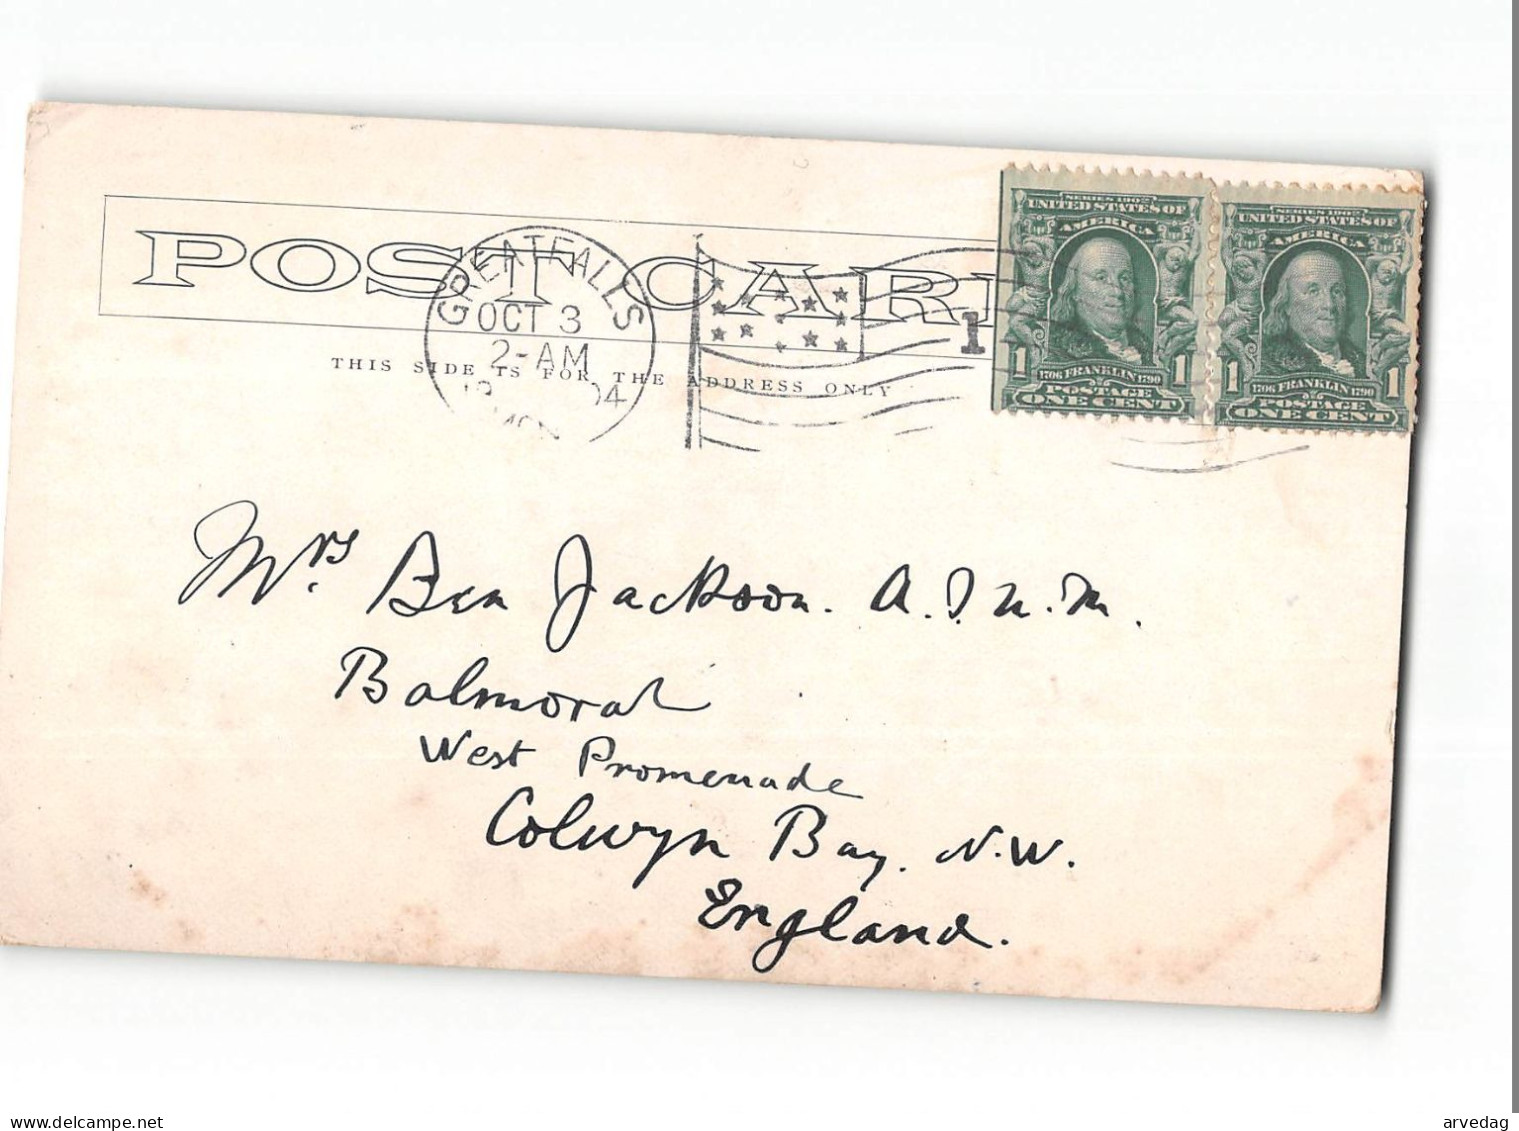 POST CARD
THIS SIDE IS FOR THE ADDRESS ONLY
GREAT FALLS
OCT 3
2-AM
04
MONT
1
SERIES 1902
UNITED STATES OF
AMERICA
1 1
1706 FRANKLIN 1790
POSTAGE
ONE CENT
SERIES 1902
UNITED STATES OF
AMERICA
1 1
1706 FRANKLIN 1790
POSTAGE
ONE CENT
Mrs Ben Jackson.
Balmoral
West Promenade
Colwyn Bay. N.W.
England.
delcampe.net
arvedag